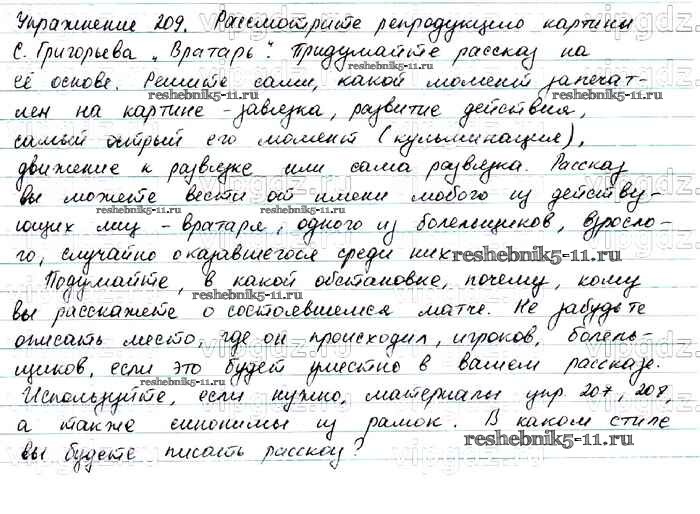 Упражнение 209. Рассмотрите репродукцию картины
С. Григорьева „Вратарь". Придумайте рассказ на
её основе. Решите сами, какой момент запечат-
reshebnik5-11.ru reshebnik5-11.ru
лен на картине - завязка, развитие действия,
самый острый его момент (кульминация),
движение к развязке или сама развязка. Рассказ
вы можете вести от имени любого из действу-
reshebnik5-11.ru reshebnik5-11.ru
ющих лиц - вратаря, одного из болельщиков, взросло-
го, случайно оказавшегося среди них.
reshebnik5-11.ru
Подумайте, в какой обстановке, почему, кому
reshebnik5-11.ru
вы расскажете о состоявшемся матче. Не забудьте
описать место, где он происходил, игроков, болель-
щиков, если это будет уместно в вашем рассказе.
reshebnik5-11.ru
Используйте, если нужно, материалы упр. 207, 208,
а также синонимы из рамок. В каком стиле
reshebnik5-11.ru
вы будете писать рассказ?
vipgdz.ru